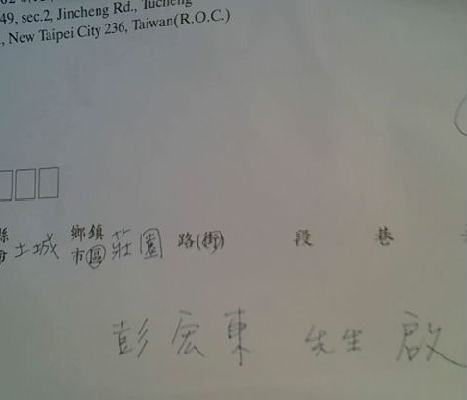 49, sec.2, Jincheng Rd., Tucheng
, New Taipei City 236, Taiwan(R.O.C.)
縣 鄉鎮
市 土城 市區 莊園 路(街) 段 巷
彭宏東 先生 啟